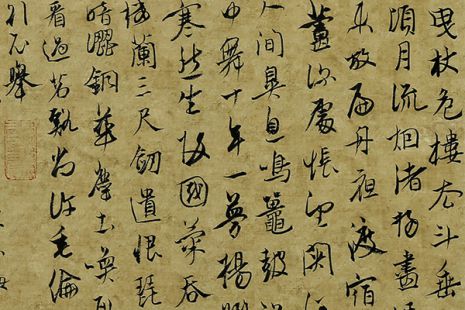 曳杖危樓去斗垂
頃月流烟渚掃盡
未放扁舟夜渡宿
蘆深處悵望關河
人間鼻息鳴鼉鼓誰
中舞十年一夢楊州
寒愁生故國氣吞
樓蘭三尺劒遺恨琵
暗澀銅華塵土喚取
看過苕溪尚許垂綸
飛舉